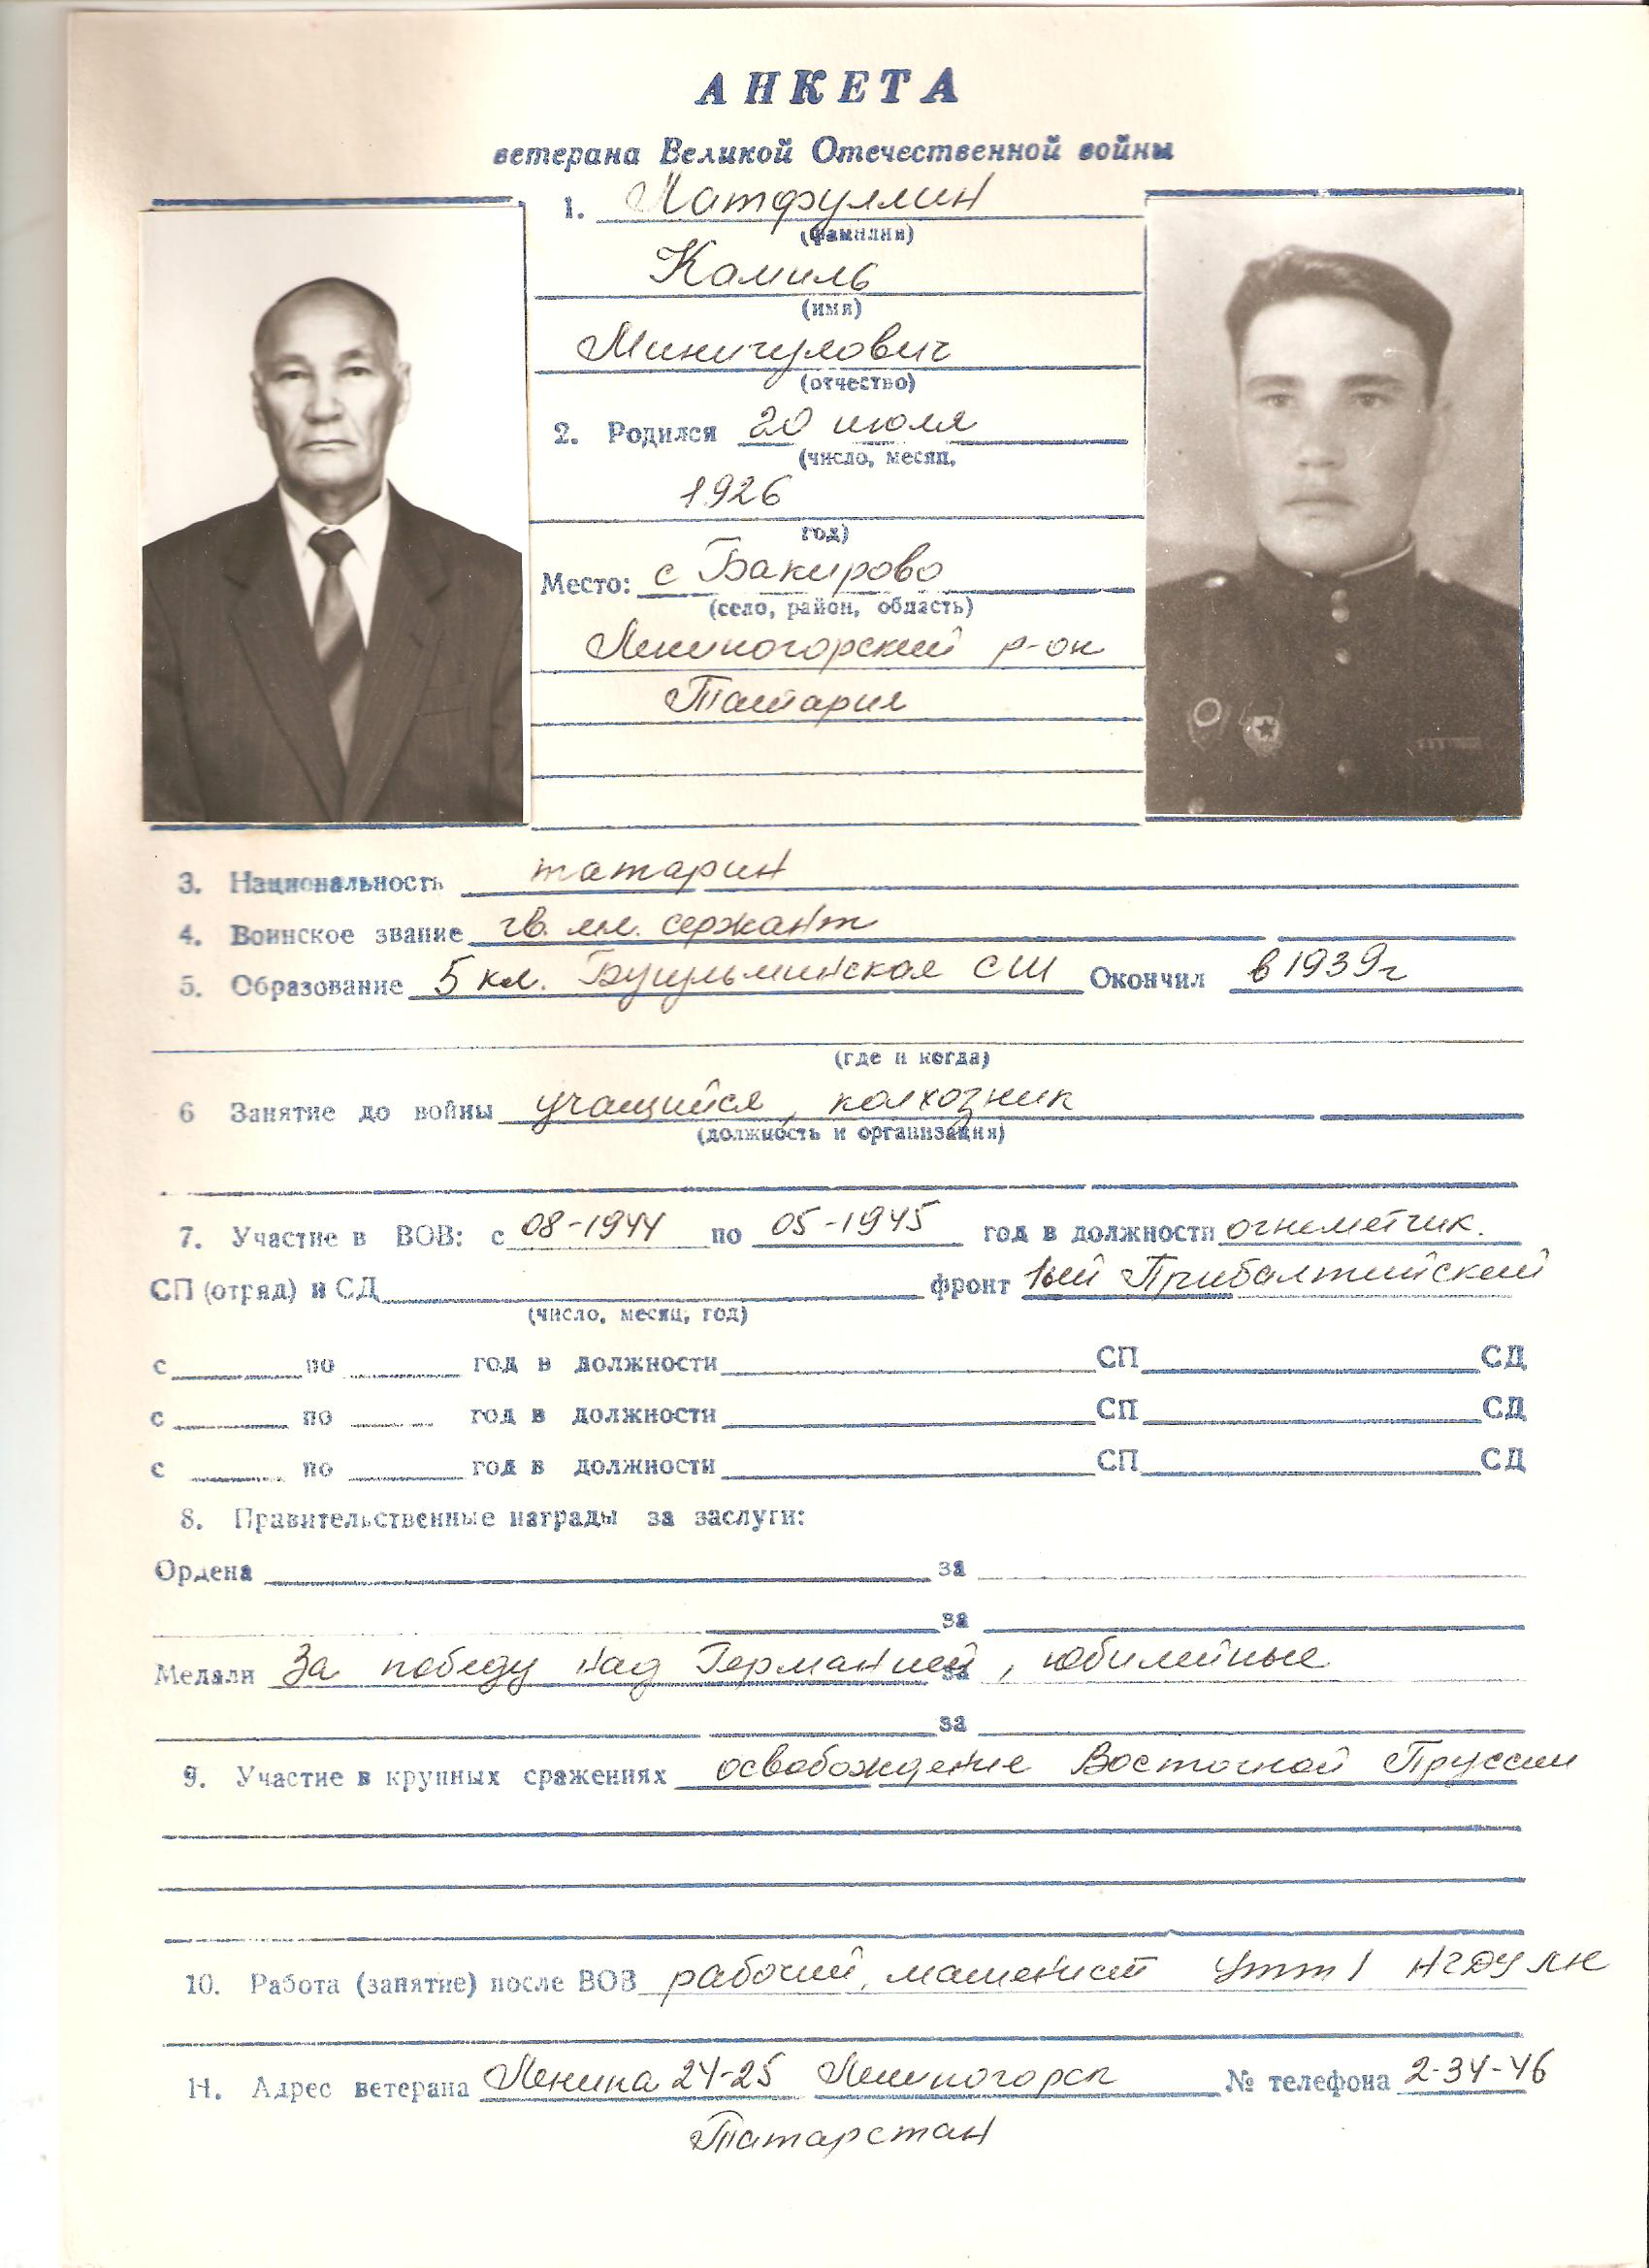 АНКЕТА
ветерана Великой Отечественной войны
1. Латфуллин
(фамилия)
Камиль
(имя)
Минигулович
(отчество)
2. Родился 20 июля
(число, месяц,
1926
год)
Место: с Бакирово
(село, район, область)
Лениногорский р-он
Татария
3. Национальность татарин
4. Воинское звание гв. мл. сержант
5. Образование 5 кл. Бугульминская СШ Окончил в 1939г
(где и когда)
6 Занятие до войны учащийся, колхозник
(должность и организация)
7. Участие в ВОВ: с 08-1944 по 05-1945 год в должности огнеметчик.
СП (отряд) и СД фронт 1ый Прибалтийский
(число, месяц, год)
с по год в должности СП СД
с по год в должности СП СД
с по год в должности СП СД
8. Правительственные награды за заслуги:
Ордена за
за
Медали За победу над Германией, юбилейные за
за
9. Участие в крупных сражениях освобождение Восточной Пруссии
10. Работа (занятие) после ВОВ рабочий, машинист УТТ 1 НГДУ ЛН
11. Адрес ветерана Ленина 24-25 Лениногорск № телефона 2-34-46
Татарстан